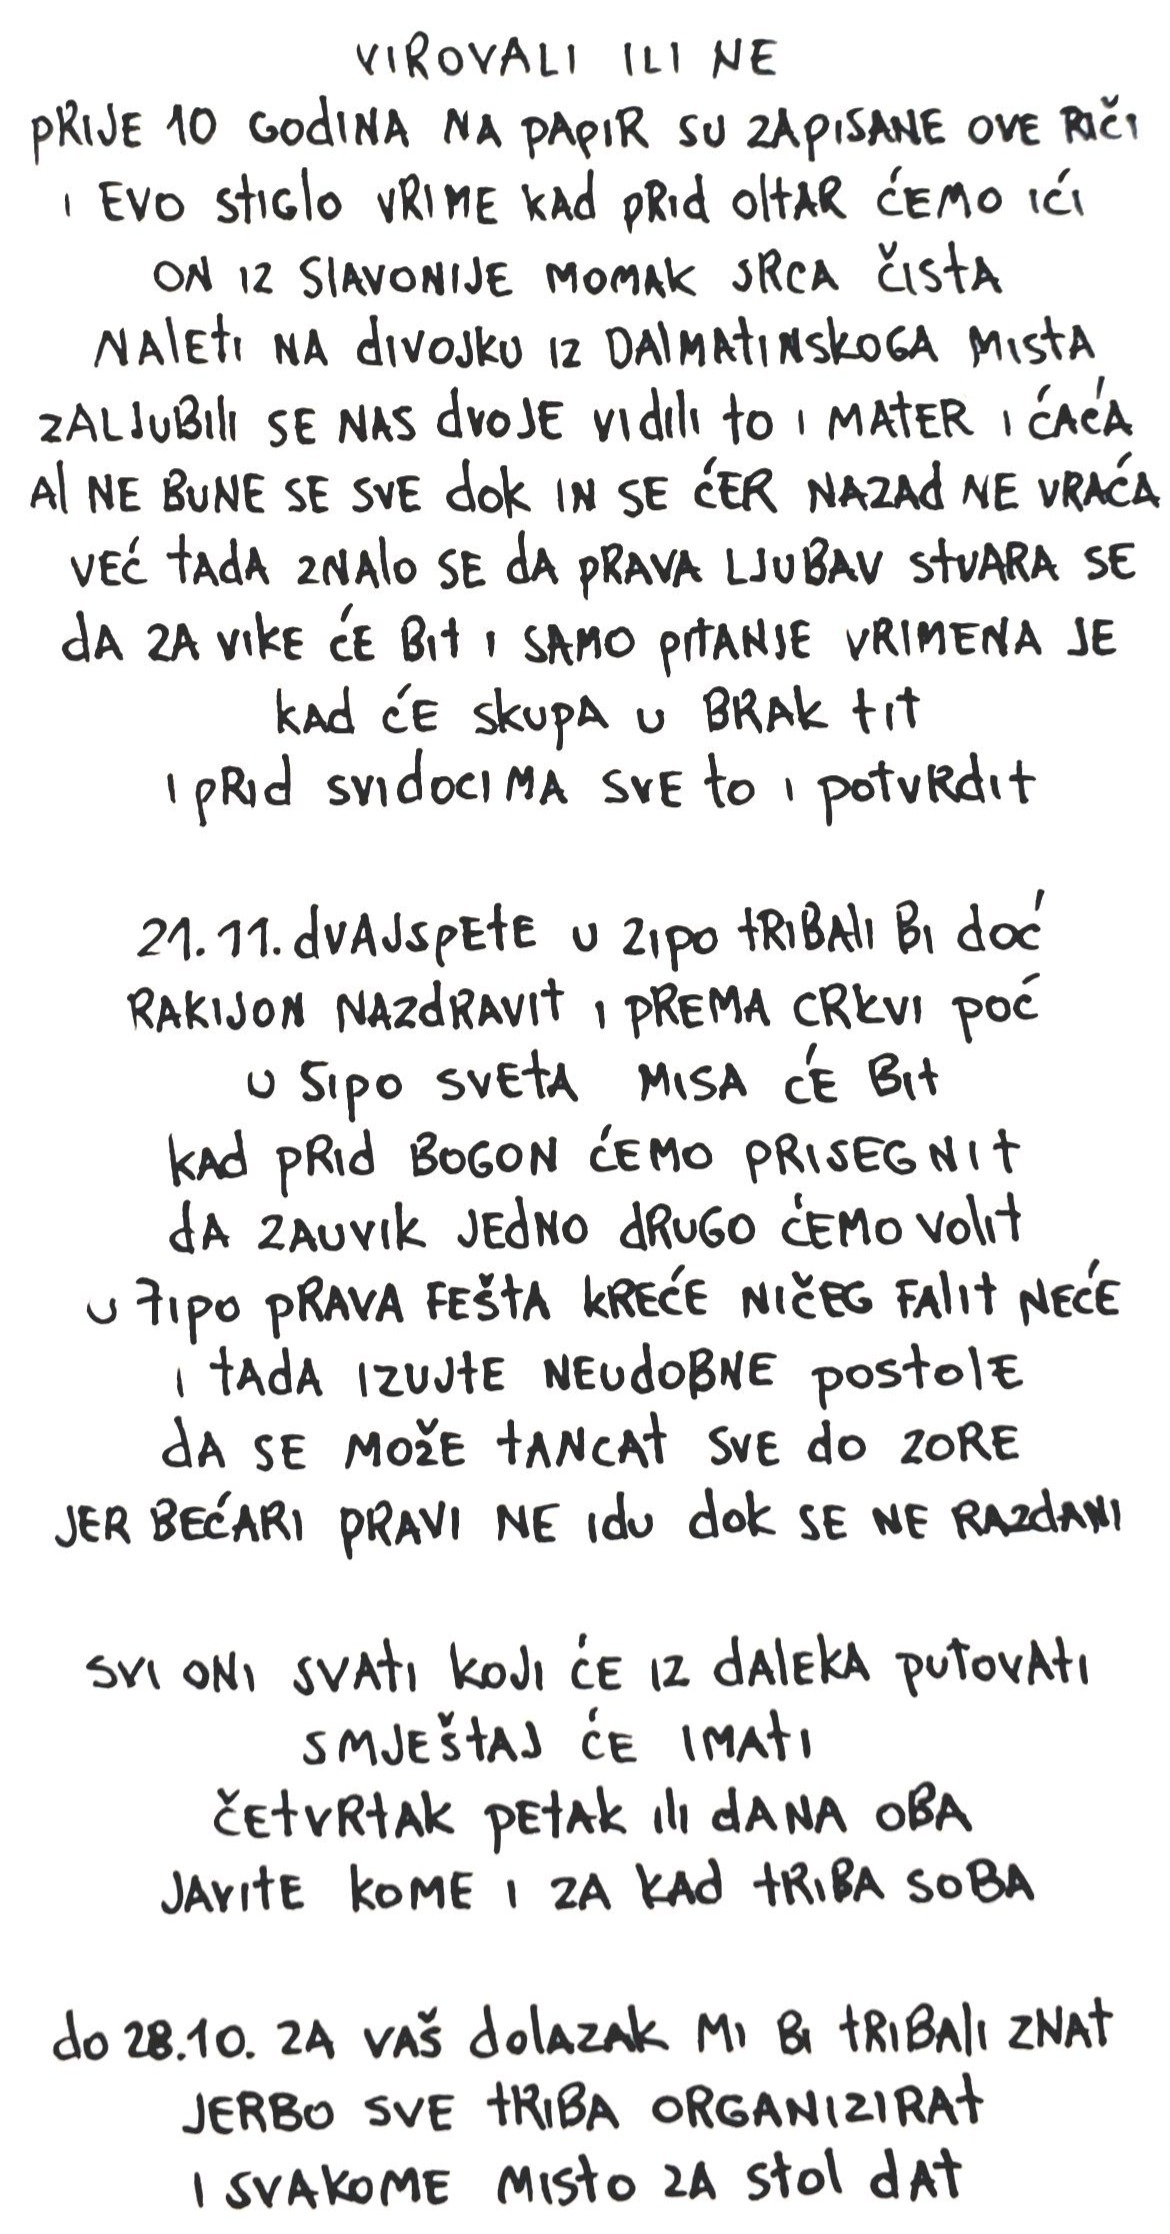 VIROVALI ILI NE
PRIJE 10 GODINA NA PAPIR SU ZAPISANE OVE RIČI
I EVO STIGLO VRIME KAD PRID OLTAR ĆEMO IĆI
ON IZ SLAVONIJE MOMAK SRCA ČISTA
NALETI NA DIVOJKU IZ DALMATINSKOGA MISTA
ZALJUBILI SE NAS DVOJE VIDILI TO I MATER I ĆAĆA
AL NE BUNE SE SVE DOK IN SE ĆER NAZAD NE VRAĆA
VEĆ TADA ZNALO SE DA PRAVA LJUBAV STVARA SE
DA ZA VIKE ĆE BIT I SAMO PITANJE VRIMENA JE
KAD ĆE SKUPA U BRAK TIT
I PRID SVIDOCIMA SVE TO I POTVRDIT
21.11. DVAJSPETE U 2IPO TRIBALI BI DOĆ
RAKIJON NAZDRAVIT I PREMA CRKVI POĆ
U 5IPO SVETA MISA ĆE BIT
KAD PRID BOGON ĆEMO PRISEGNIT
DA ZAUVIK JEDNO DRUGO ĆEMO VOLIT
U 7IPO PRAVA FEŠTA KREĆE NIČEG FALIT NEĆE
I TADA IZUJTE NEUDOBNE POSTOLE
DA SE MOŽE TANCAT SVE DO ZORE
JER BEĆARI PRAVI NE IDU DOK SE NE RAZDANI
SVI ONI SVATI KOJI ĆE IZ DALEKA PUTOVATI
SMJEŠTAJ ĆE IMATI
ČETVRTAK PETAK ILI DANA OBA
JAVITE KOME I ZA KAD TRIBA SOBA
DO 28.10. ZA VAŠ DOLAZAK MI BI TRIBALI ZNAT
JERBO SVE TRIBA ORGANIZIRAT
I SVAKOME MISTO ZA STOL DAT